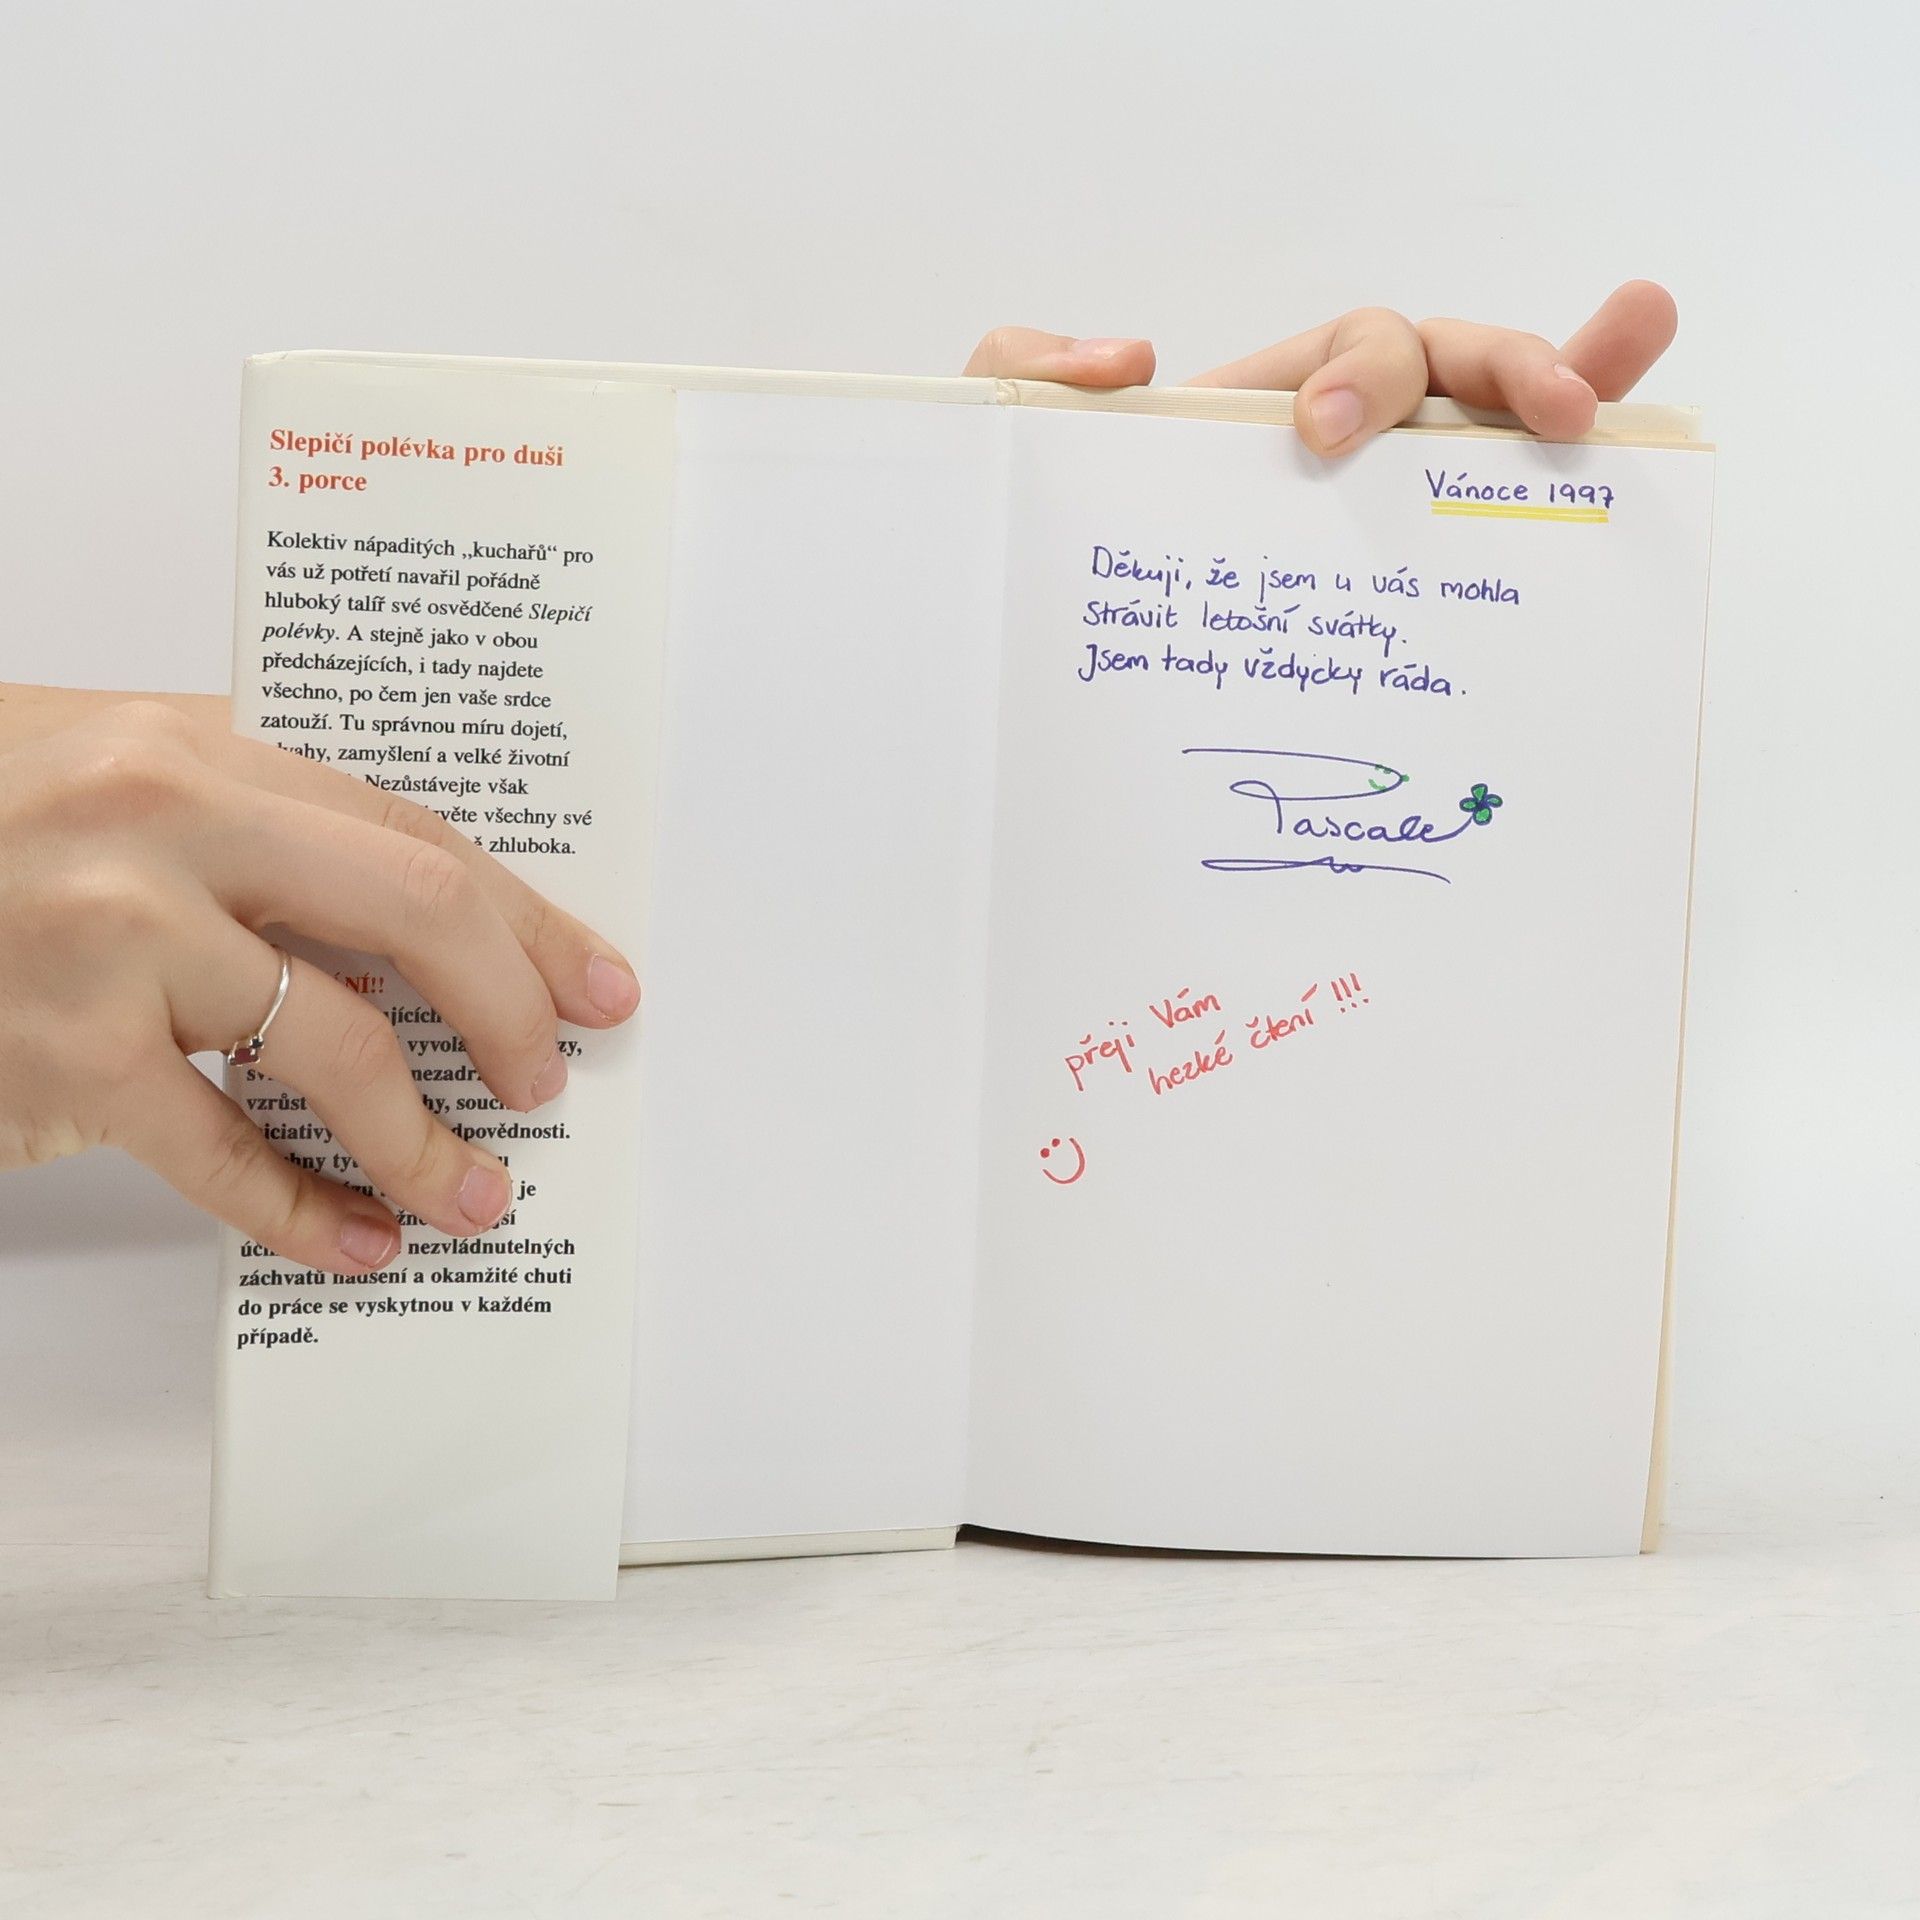 Slepičí polévka pro duši
3. porce
Kolektiv nápaditých „kuchařů“ pro
vás už potřetí navařil pořádně
hluboký talíř své osvědčené Slepičí
polévky. A stejně jako v obou
předcházejících, i tady najdete
všechno, po čem jen vaše srdce
zatouží. Tu správnou míru dojetí,
zamyšlení a velké životní
Nezůstávejte však
všechny své
zhluboka.
nezvládnutelných
záchvatů nadšení a okamžité chuti
do práce se vyskytnou v každém
případě.
Vánoce 1997
Děkuji, že jsem u vás mohla
strávit letošní svátky.
Jsem tady vždycky ráda.
Pascale
přeji Vám
hezké čtení !!!